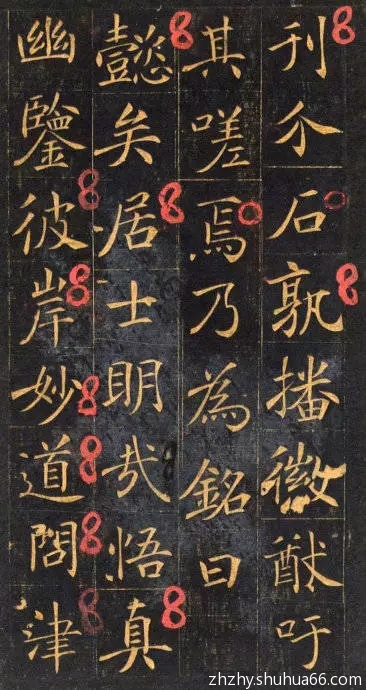 刊介石孰播徽猷吁
其嗟焉乃為銘曰
懿矣居士明哉悟真
幽鑒彼岸妙道問津
zhzhy.shuhua66.com